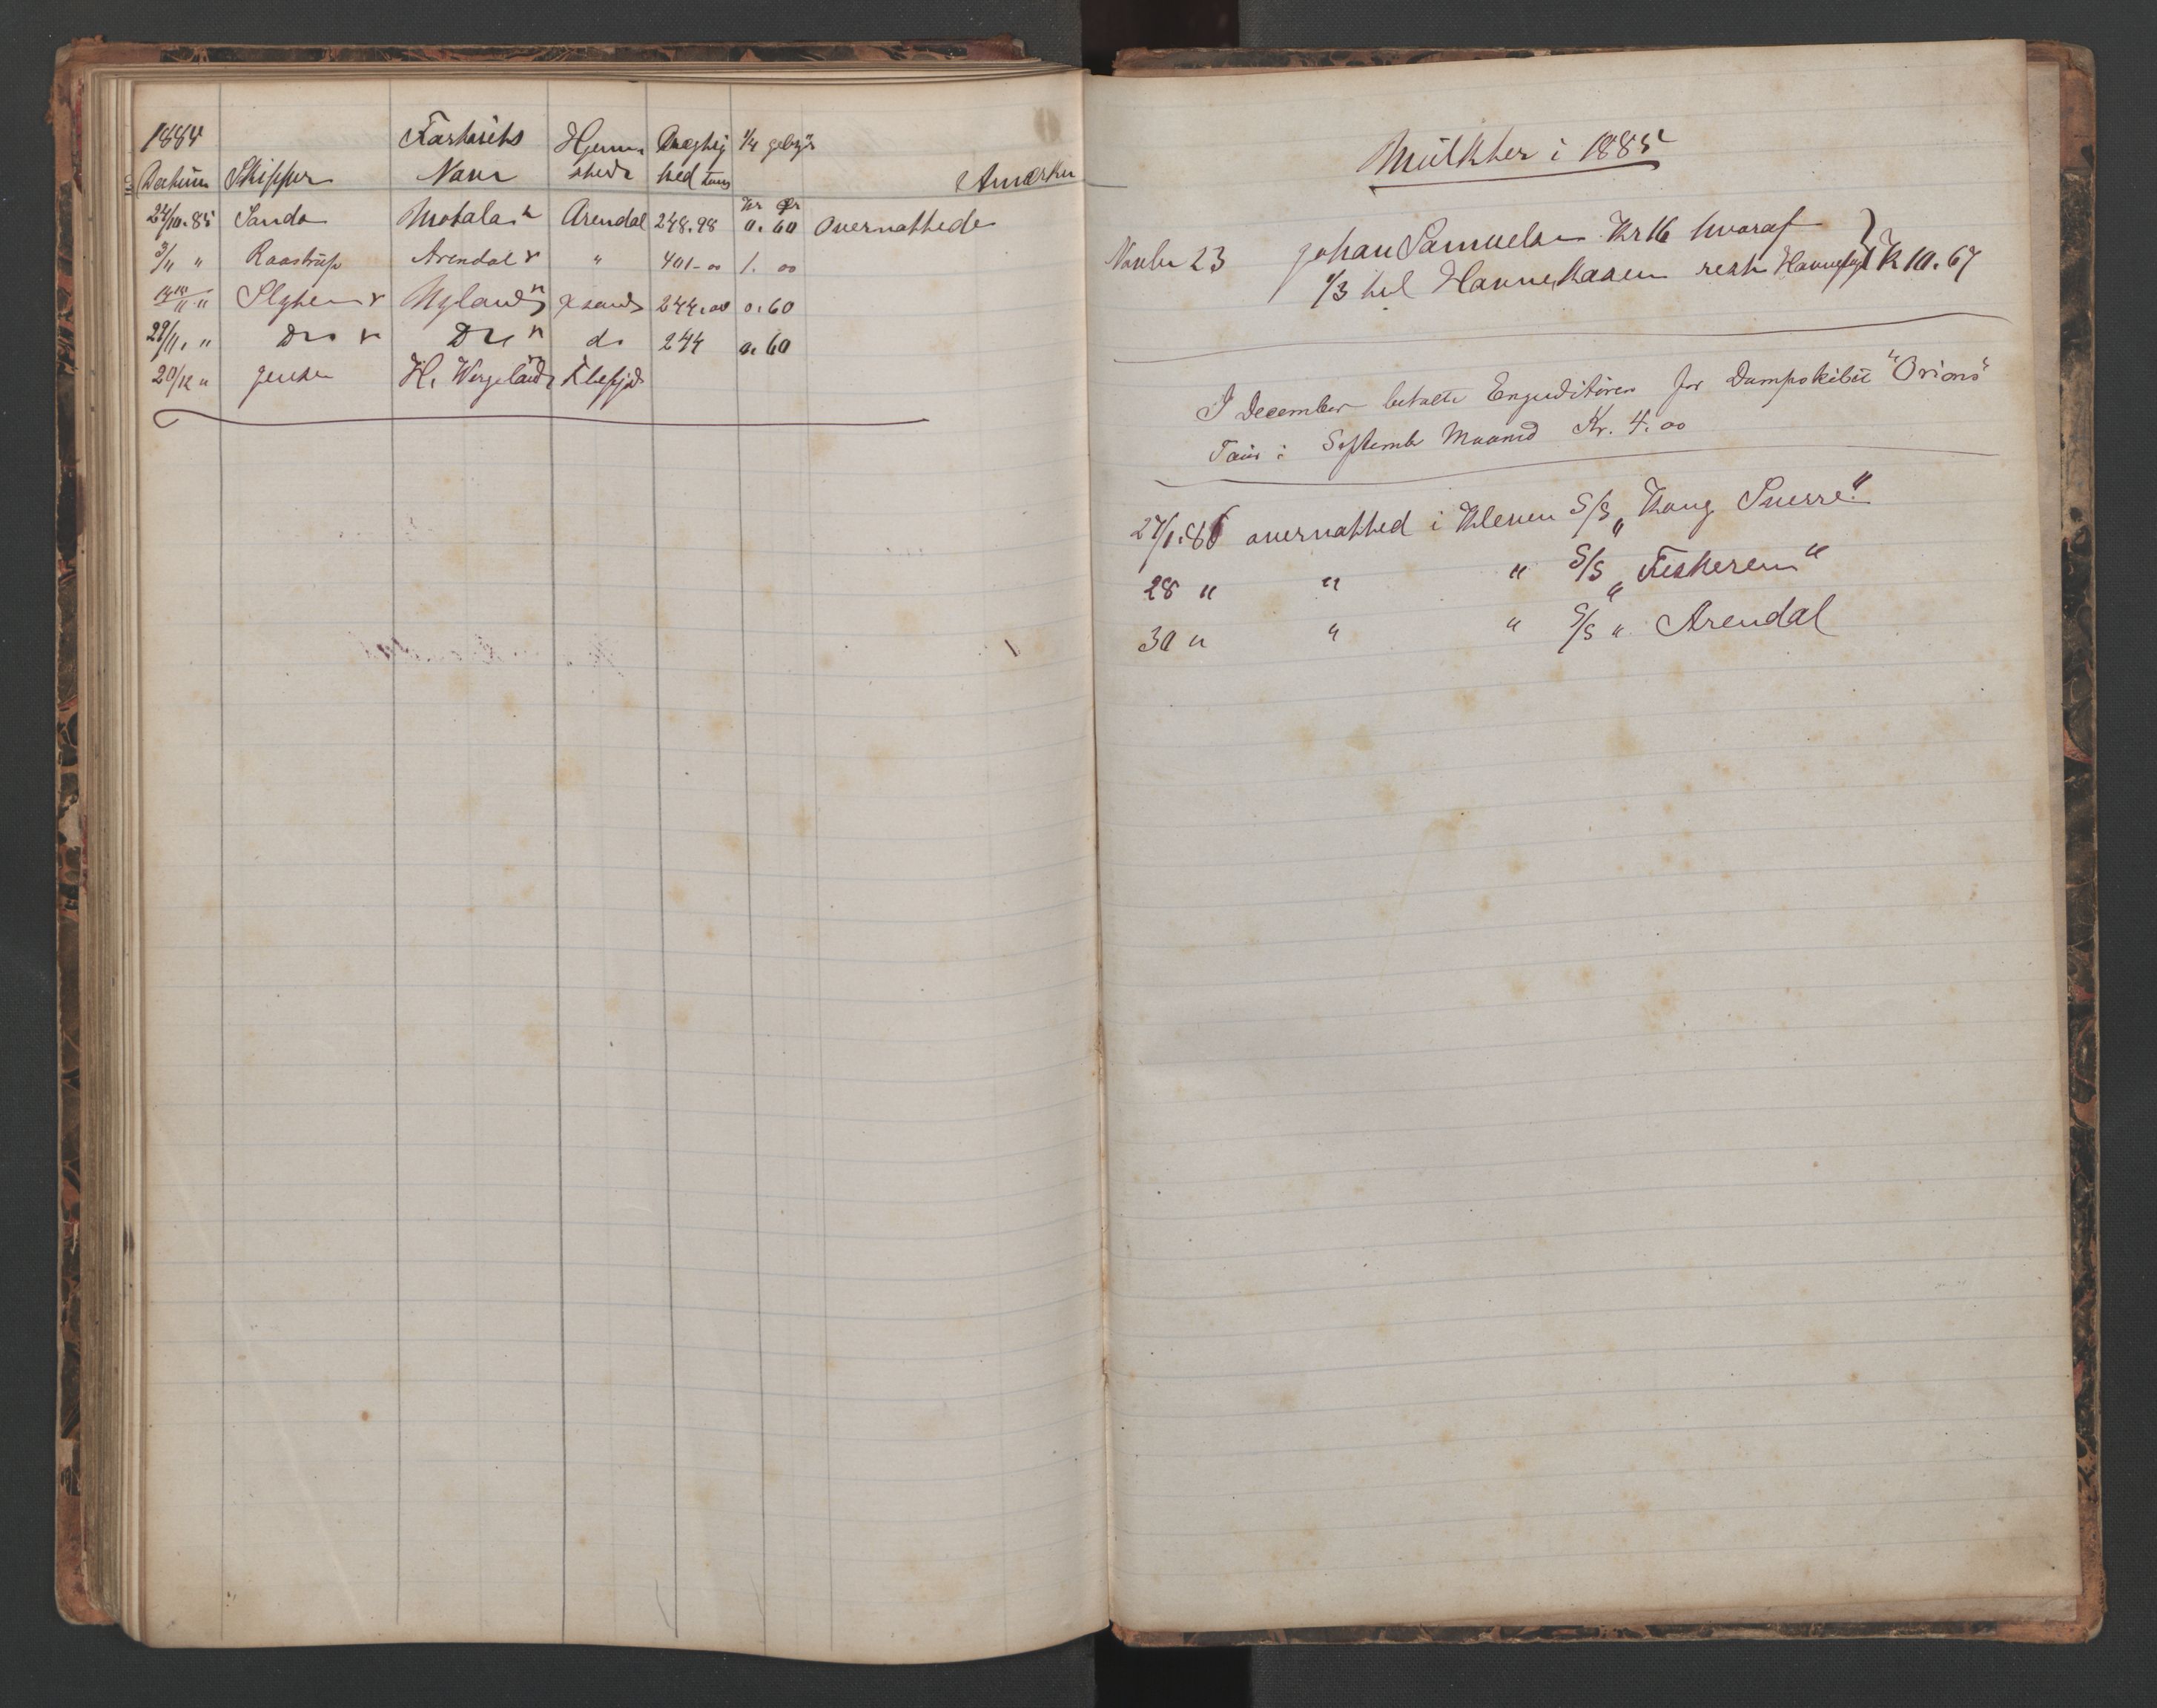 1884 Fartøiets Hjem- Drægtig ¼ gebyr
Datum Skipper Navn sted hed tons Anmærkn
Kr Ør
24/10.85 Sando Motala Arendal 248.98 0.60 Overnattede
3/11 " Raastrup Arendal " 401-00 1.00
11 " Nyland Xsand 244.00 0.60
29/11. " Do Do do 244 0.60
20/12 " Jensen H. Wergeland
Mulkter i 1885
Novbr 23 Johan Samuelsen Kr 16 hvoraf
1/3 til Havnekassen rest Havnefogd K 10.67
I December betalte Expeditøren for Dampskibet "Orions"
Tour i September Maaned Kr. 4.00
27/1.86 overnatted i Kleven S/S „Kong Sverre"
28 " " " S/S „Fiskeren"
30 " " " S/S „ Arendal